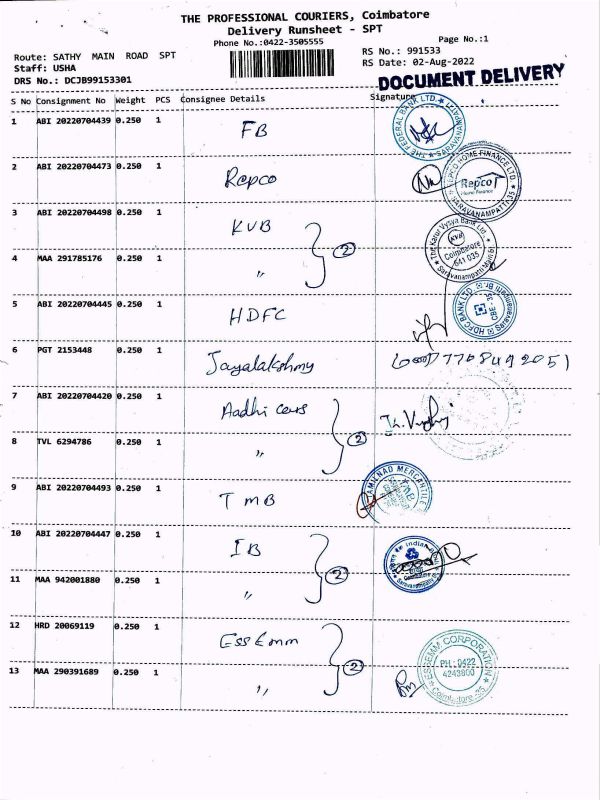 THE PROFESSIONAL COURIERS, Coimbatore
Delivery Runsheet - SPT
Phone No.:0422-3505555
Page No.:1
Route: SATHY MAIN ROAD SPT
RS No.: 991533
Staff: USHA
RS Date: 02-Aug-2022
DRS No.: DCJB99153301
DOCUMENT DELIVERY
S No Consignment No Weight PCS Consignee Details Signature
1 ABI 20220704439 0.250 1 FB
THE FEDERAL BANK LTD. SARAVANAMPATTI
2 ABI 20220704473 0.250 1 Repco
REPCO HOME FINANCE LTD. SARAVANAMPATTI-35
Repco
Home Finance
3 ABI 20220704498 0.250 1 KVB
The Karur Vysya Bank Ltd.,
KVB
Coimbatore
641 035
4 MAA 291785176 0.250 1 "
2
5 ABI 20220704445 0.250 1 HDFC
HDFC BANK LTD
CBE - 35
6 PGT 2153448 0.250 1 Jayalakshmy
7708492051
7 ABI 20220704420 0.250 1 Aadhi cars
8 TVL 6294786 0.250 1 "
2
9 ABI 20220704493 0.250 1 TMB
TAMILNAD MERCANTILE
10 ABI 20220704447 0.250 1 IB
11 MAA 942001880 0.250 1 "
2
12 HRD 20069119 0.250 1 Ess Emm
13 MAA 290391689 0.250 1 "
2
ESSEMM CORPORATION
PH : 0422
4243800
Coimbatore-35